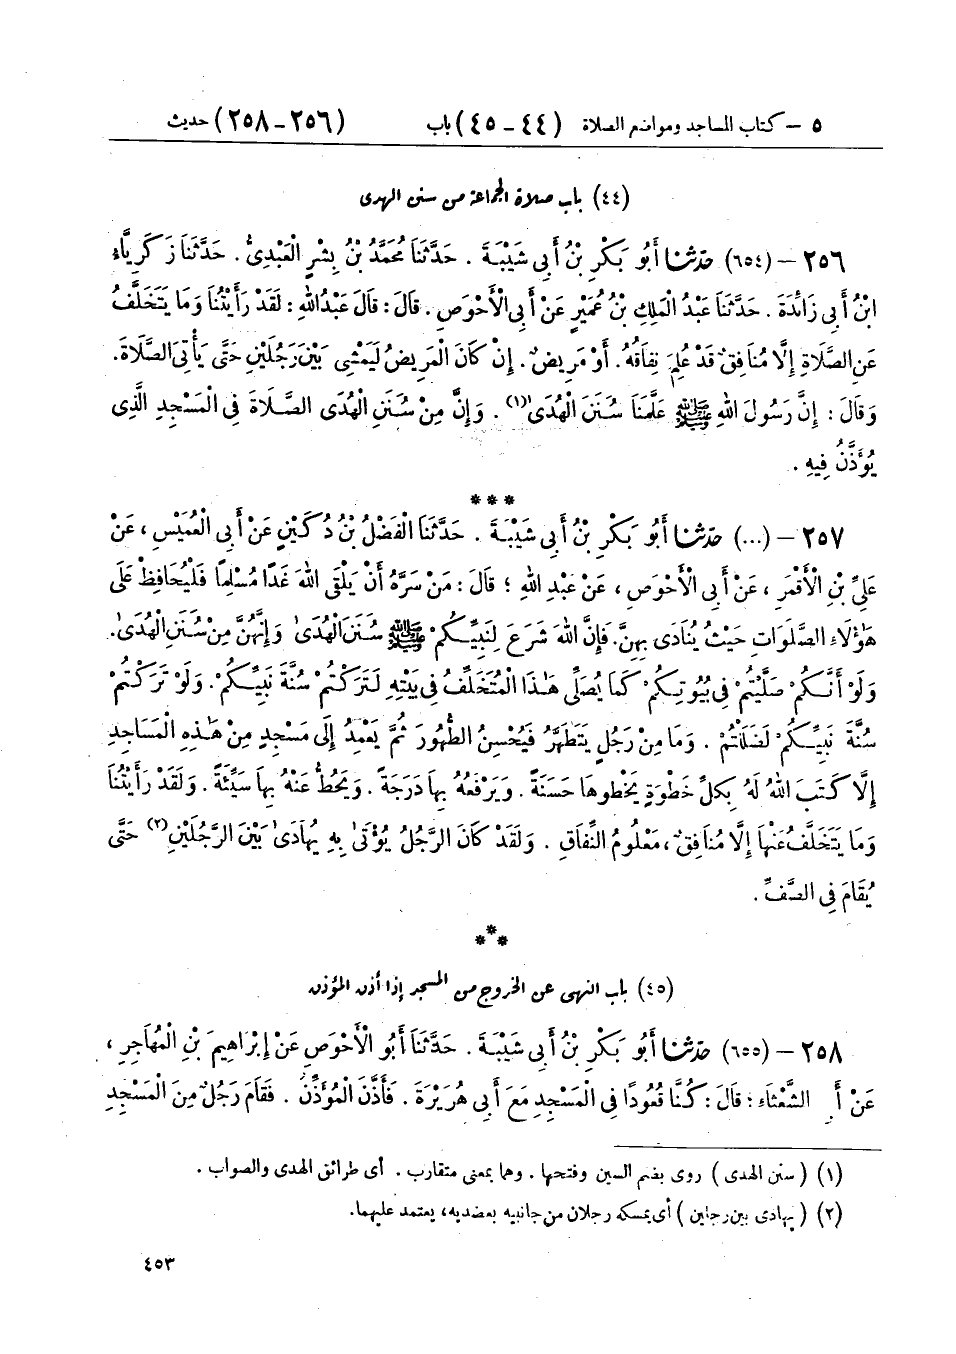 ٥ – كتاب المساجد ومواضع الصلاة (٤٤ – ٤٥) باب (٢٥٦ – ٢٥٨) حديث
(٤٤) باب صلاة الجماعة من سنن الهدى
٢٥٦ – (٦٥٤) حَدَّثَنَا أَبُو بَكْرِ بْنُ أَبِي شَيْبَةَ . حَدَّثَنَا مُحَمَّدُ بْنُ بِشْرٍ الْعَبْدِىُّ . حَدَّثَنَا زَكَرِيَّاءُ
ابْنُ أَبِي زَائِدَةَ . حَدَّثَنَا عَبْدُ الْمَلِكِ بْنُ عُمَيْرٍ عَنْ أَبِي الْأَحْوَصِ . قَالَ : قَالَ عَبْدُ اللهِ : لَقَدْ رَأَيْتُنَا وَمَا يَتَخَلَّفُ
عَنِ الصَّلَاةِ إِلَّا مُنَافِقٌ قَدْ عُلِمَ نِفَاقُهُ . أَوْ مَرِيضٌ . إِنْ كَانَ الْمَرِيضُ لَيَمْشِى بَيْنَ رَجُلَيْنِ حَتَّى يَأْتِيَ الصَّلَاةَ .
وَقَالَ : إِنَّ رَسُولَ اللهِ ﷺ عَلَّمَنَا سُنَنَ الْهُدَى(١) . وَإِنَّ مِنْ سُنَنِ الْهُدَى الصَّلَاةَ فِي الْمَسْجِدِ الَّذِى
يُؤَذَّنُ فِيهِ .
***
٢٥٧ – (...) حَدَّثَنَا أَبُو بَكْرِ بْنُ أَبِي شَيْبَةَ . حَدَّثَنَا الْفَضْلُ بْنُ دُكَيْنٍ عَنْ أَبِي الْعُمَيْسِ ، عَنْ
عَلِيِّ بْنِ الْأَقْمَرِ ، عَنْ أَبِي الْأَحْوَصِ ، عَنْ عَبْدِ اللهِ ؛ قَالَ : مَنْ سَرَّهُ أَنْ يَلْقَى اللهَ غَدًا مُسْلِمًا فَلْيُحَافِظْ عَلَى
هَٰؤُلَاءِ الصَّلَوَاتِ حَيْثُ يُنَادَى بِهِنَّ . فَإِنَّ اللهَ شَرَعَ لِنَبِيِّكُمْ ﷺ سُنَنَ الْهُدَىٰ وَإِنَّهُنَّ مِنْ سُنَنِ الْهُدَىٰ .
وَلَوْ أَنَّكُمْ صَلَّيْتُمْ فِي بُيُوتِكُمْ كَمَا يُصَلِّى هَٰذَا الْمُتَخَلِّفُ فِي بَيْتِهِ لَتَرَكْتُمْ سُنَّةَ نَبِيِّكُمْ . وَلَوْ تَرَكْتُمْ
سُنَّةَ نَبِيِّكُمْ لَضَلَلْتُمْ . وَمَا مِنْ رَجُلٍ يَتَطَهَّرُ فَيُحْسِنُ الطُّهُورَ ثُمَّ يَعْمِدُ إِلَى مَسْجِدٍ مِنْ هَٰذِهِ الْمَسَاجِدِ
إِلَّا كَتَبَ اللهُ لَهُ بِكُلِّ خَطْوَةٍ يَخْطُوهَا حَسَنَةً . وَيَرْفَعُهُ بِهَا دَرَجَةً . وَيَحُطُّ عَنْهُ بِهَا سَيِّئَةً . وَلَقَدْ رَأَيْتُنَا
وَمَا يَتَخَلَّفُ عَنْهَا إِلَّا مُنَافِقٌ ، مَعْلُومُ النِّفَاقِ . وَلَقَدْ كَانَ الرَّجُلُ يُؤْتَىٰ بِهِ يُهَادَىٰ بَيْنَ الرَّجُلَيْنِ(٢) حَتَّى
يُقَامَ فِي الصَّفِّ .
***
(٤٥) باب النهى عن الخروج من المسجد إذا أذن المؤذن
٢٥٨ – (٦٥٥) حَدَّثَنَا أَبُو بَكْرِ بْنُ أَبِي شَيْبَةَ . حَدَّثَنَا أَبُو الْأَحْوَصِ عَنْ إِبْرَاهِيمَ بْنِ الْمُهَاجِرِ ،
عَنْ أَ الشَّعْثَاءِ ؛ قَالَ : كُنَّا قُعُودًا فِي الْمَسْجِدِ مَعَ أَبِي هُرَيْرَةَ . فَأَذَّنَ الْمُؤَذِّنُ . فَقَامَ رَجُلٌ مِنَ الْمَسْجِدِ
(١) ( سنن الهدى ) روى بضم السين وفتحها . وهما بمعنى متقارب . أى طرائق الهدى والصواب .
(٢) ( يهادى بين رجلين ) أى يمسكه رجلان من جانبيه بعضديه، يعتمد عليهما.
٤٥٣